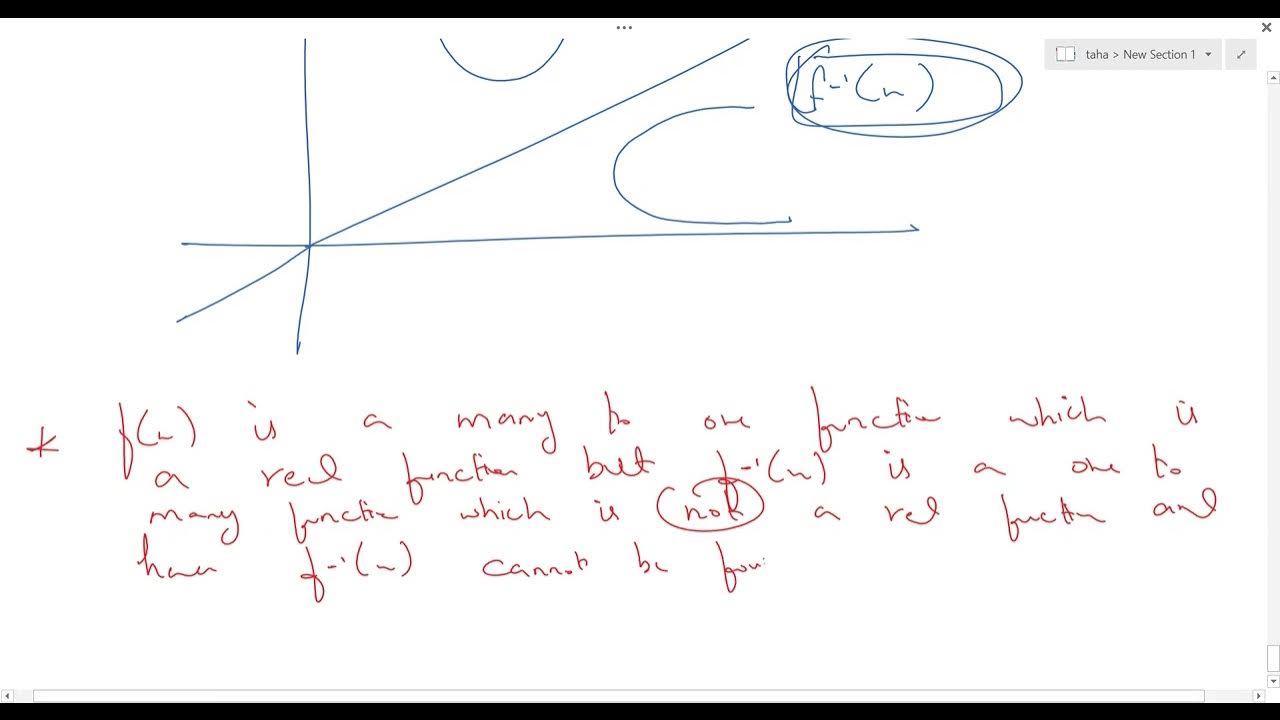 taha > New Section 1
f⁻¹(x)
* f(x) is a many to one function which is
a real function but f⁻¹(x) is a one to
many function which is not a real function and
hence f⁻¹(x) cannot be foun